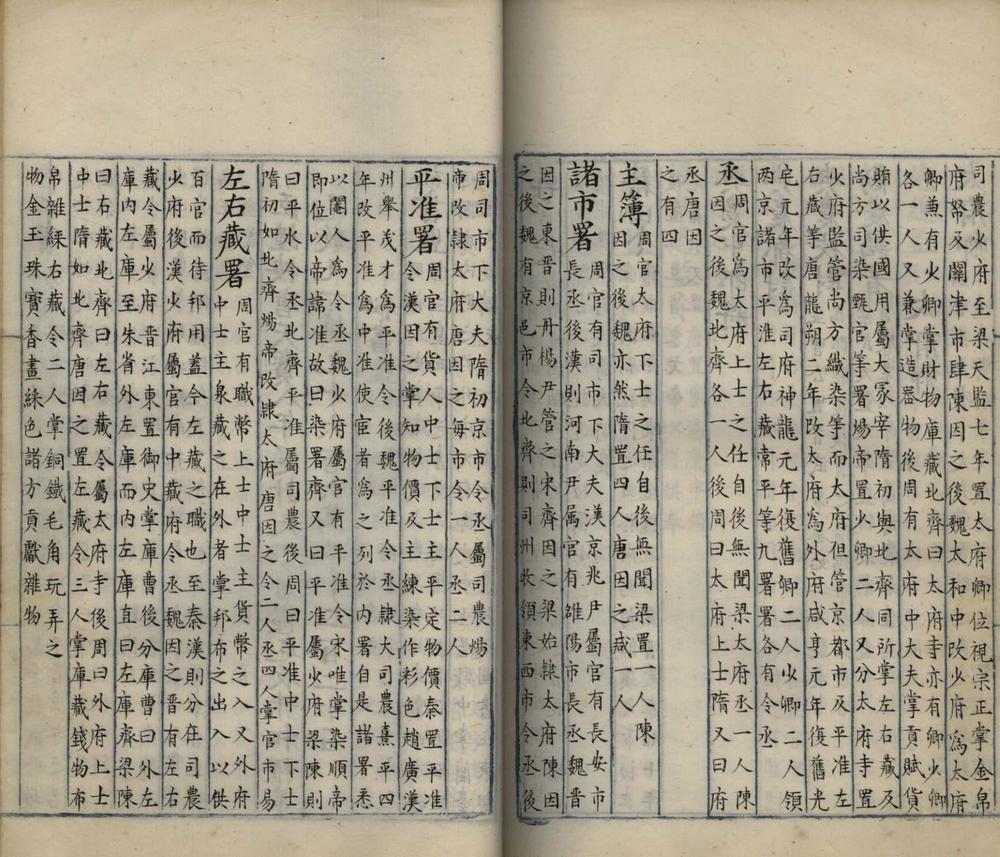 司農少府至梁天監七年置太府卿位視宗正掌金帛
府帑及關津市肆陳因之後魏太和中改少府為太府
卿兼有少卿掌財物庫藏北齊曰太府寺亦有卿少卿
各一人又兼掌造器物後周有太府中大夫掌貢賦貨
賄以供國用屬大冢宰隋初與北齊同所掌左右藏及
尚方司染甄官等署煬帝置少卿二人又分太府寺置
少府監管尚方織染等而太府但管京都市及平准左
右藏等唐龍朔二年改太府為外府咸亨元年復舊光
宅元年改為司府神龍元年復舊卿二人少卿二人領
两京諸市平准左右藏常平等九署署各有令丞
丞
周官為太府上士之任自後無聞梁太府丞一人陳
因之後魏北齊各一人後周曰太府上士隋又曰府
丞唐因
之有四
主簿
周官太府下士之任自後無聞梁置一人陳
因之後魏亦然隋置四人唐因之咸一人
諸市署
周官有司市下大夫漢京兆尹屬官有長安市
長丞後漢則河南尹属官有雒陽市長丞魏晋
因之東晋則丹楊尹管之宋齊因之梁始隷太府陳因
之後魏有京邑市令北齊則司州牧領東西市令丞後
周司市下大夫隋初京市令丞屬司農煬
帝改隷太府唐因之每市令一人丞二人
平准署
周官有貨人中士下士主平定物價秦置平准
令漢因之掌知物價及主練染作彩色趙廣漢
州舉茂才為平准令後魏平准令丞隷大司農熹平四
年改平准為中准使宦者為之列於內署自是諸署悉
以閹人為令丞魏少府屬官有平准令宋唯掌染順帝
即位以帝諱准故曰染署齊又曰平准屬少府梁陳則
曰平水令丞北齊平准屬司農後周曰平准中士下士
隋初如北齊煬帝改隷太府唐因之令二人丞四人掌官市易
左右藏署
周官有職幣上士中士主貨幣之入又外府
中士主泉藏之在外者掌邦布之出入以供
百官而待邦用蓋今左藏之職也至秦漢則分在司農
少府後漢少府屬官有中藏府令丞魏因之晋有左右
藏令屬少府晋江東置御史掌庫曹後分庫曹曰外左
庫內左庫至朱省外左庫而內左庫直曰左庫齊梁陳
曰右藏北齊曰左右藏令屬太府寺後周曰外府上士
中士隋如北齊唐因之置左藏令三人掌庫藏錢物布
帛雜綵右藏令二人掌銅鐵毛角玩弄之
物金玉珠寳香畫綵色諸方貢獻雜物